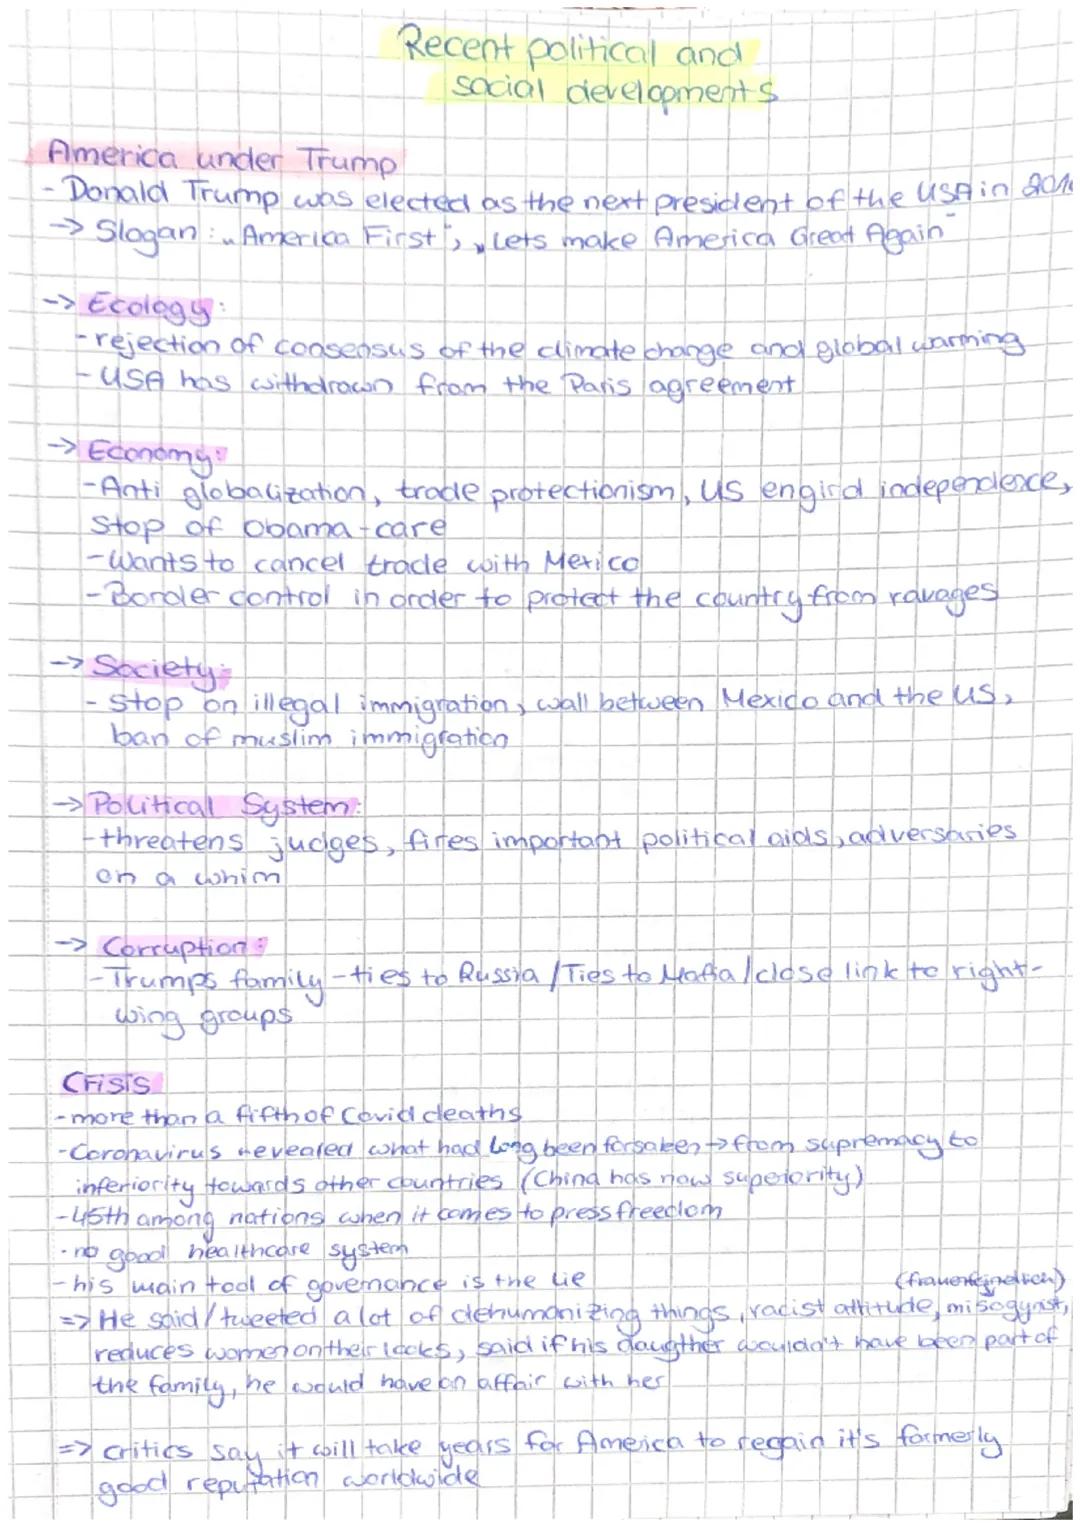 Recent political and
social developments
America under Trump
- Donald Trump was elected as the next president of the USA in 201
-> Slogan: „America First", „Lets make America Great Again"
-> Ecology:
- rejection of consensus of the climate change and global warming
- USA has withdrawn from the Paris agreement
-> Economy:
- Anti globalization, trade protectionism, US independence,
stop of Obama-care
- Wants to cancel trade with Mexico
- Border control in order to protect the country from ravages
-> Society:
- stop on illegal immigration, wall between Mexico and the US,
ban of muslim immigration
-> Political System:
- threatens judges, fires important political aids, adversaries
on a whim
-> Corruption:
- Trumps family - ties to Russia / Ties to Mafia / close link to right-
wing groups
Crisis
- more than a fifth of Covid deaths
- Coronavirus revealed what had long been forsaken -> from supremacy to
inferiority towards other countries (China has now superiority)
- 45th among nations when it comes to press freedom
- no good healthcare system
- his main tool of governance is the lie
(frauenfeindlich)
=> He said/tweeted a lot of dehumanizing things, racist attitude, misogynist,
reduces women on their looks, said if his daugther wouldn't have been part of
the family, he would have an affair with her
=> critics say it will take years for America to regain it's formerly
good reputation worldwide